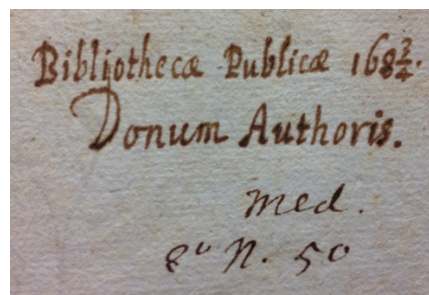 Bibliothecæ Publicæ 168¾.
Donum Authoris.
med.
8º N. 50